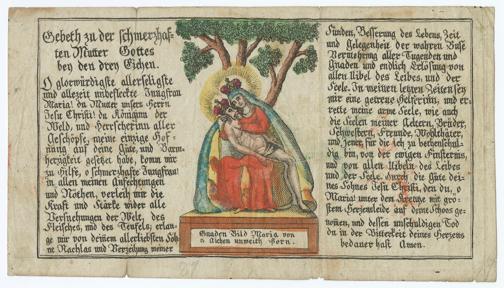 Gebeth zu der schmerzhaf-
ten Mutter Gottes
bey den drey Eichen.
O glorwürdigste allerseligste
und allezeit unbefleckte Jungfrau
Maria! du Mutter unsers Herrn
Jesu Christi! du Königinn der
Welt, und Herrscherinn aller
Geschöpfe, meine einzige Hof-
nung auf deine Güte, und Barm-
herzigkeit gesetzet habe, komm mir
zu Hilfe, o schmerzhafte Jungfrau!
in allen meinen Anfechtungen
und Nöthen, verleih mir die
Kraft und Stärke wider alle
Versuchungen der Welt, des
Fleisches, und des Teufels; erlan-
ge mir von deinem allerliebsten Soh-
ne Nachlas und Verzeihung meiner
Gnaden Bild Maria von
3 Aichen unweith Horn.
Sünden, Besserung des Lebens, Zeit
und Gelegenheit der wahren Buse
Vermehrung aller Tugenden und
Gnaden und endlich Erlösung von
allen Uibel des Leibes und der
Seele. In meinen letzen Zeiten sey
mir eine getreue Helferinn, und er-
rette meine arme Seele, wie auch
die Seelen meiner Aeltern, Brüder,
Schwestern, Freunde, Wohlthäter,
und jene für die ich zu bethen schul-
dig bin, von der ewigen Finsternis,
und von allen Uibeln des Leibes
und der Seele, durch die Güte dei-
nes Sohnes Jesu Christi, den du, o
Maria! unter dem Kreuze mit grö-
stem Herzenleide auf deine Schoos ge-
nommen, und dessen unschuldigen Tod
du in der Bitterkeit deines Herzens
bedauer hast Amen.